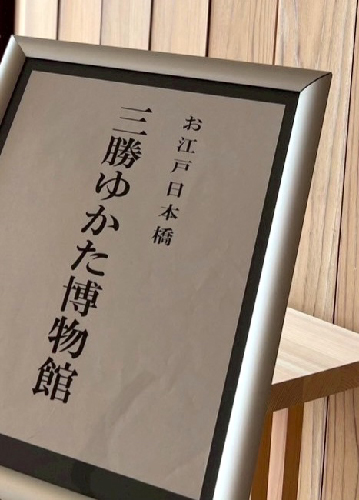 お江戸日本橋
三勝ゆかた博物館